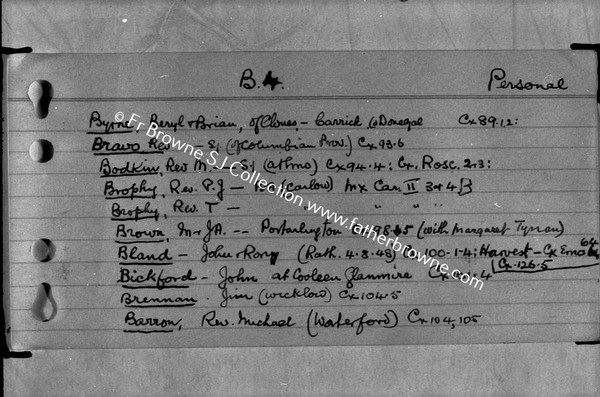 B.4. Personal
Byrne Beryl & Brian, of Clones - Carrick Co Donegal Cx 89.1.2:
Bravo Rev - S.J. (of Columbian Prov.) Cx 93.6
Bodkin, Rev M. - S.J. (athmo) Cx 94.4: Cx. Rosc. 2.3:
Brophy, Rev. P.J - (Carlow) Mx Car. II 3 & 4 }
Brophy, Rev. T - " " " "
Brown, Mr JA. -- Portarlington (with Margaret Tynan)
Bland - John & Rory (Rath. 4.3.48) 100.1.4: Harvest - Cx Emo 64
Cx. 126.5
Bickford - John at Cooleen Glanmire Cx
Brennan. Jim (Wicklow) Cx 104.5
Barron, Rev. Michael (Waterford) Cx 104, 105
© Fr Browne S.J. Collection www.fatherbrowne.com